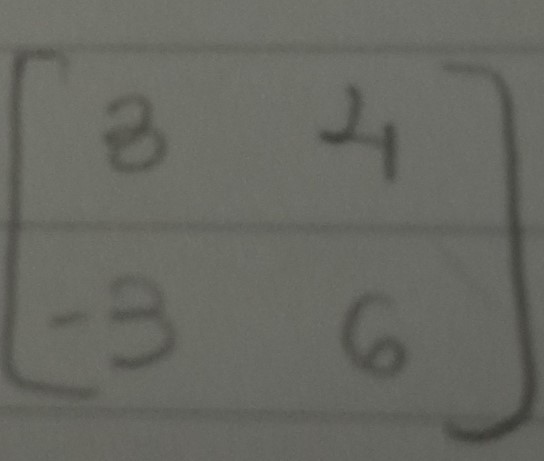 8 4
-3 6